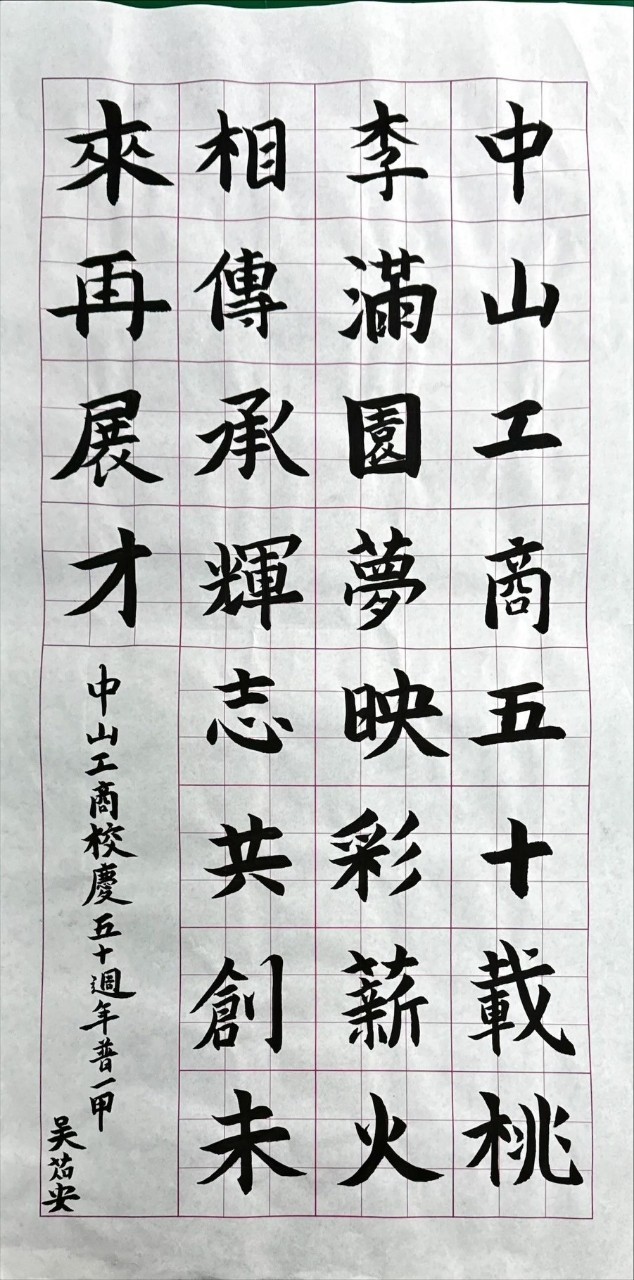 中山工商五十載桃
李滿園夢映彩薪火
相傳承輝志共創未
來再展才
中山工商校慶五十週年普一甲
吳茹安